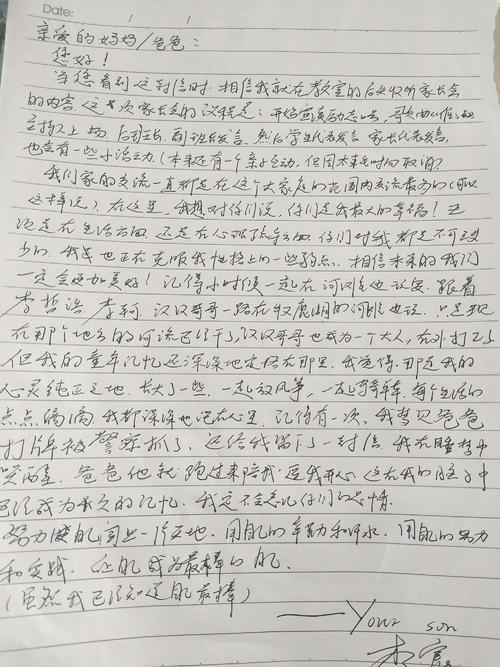 Date: / /
亲爱的妈妈/爸爸:
您好!
当您看到这封信时,相信我就在教室的后边听家长会
的内容,这次家长会的议程是:开始宣读励志,歌曲
主持人上场,后班长,副班长发言,然后学生代表发言,家长代表发言,
也会有一些小活动(本来还有一个亲子互动,但因太耗时间取消)
我们家的交流一直都是在这个大家庭的范围内交流最多的(可以
这样说)在这里,我想对你们说,你们是我最大的幸福!无
论是在生活方面,还是在心理疏导方面,你们对我都是不可或
少的,我也正在克服我性格上的一些弱点,相信未来的我们
一定会更加美好!记得小时候一起在河
李哲浩,李珂,汉汉哥哥一路在牧鹿湖的河,只是现
在那个地方的河流已经干了,汉汉哥哥也成为一个大人,在外打工了
但我的童年记忆还深深地定格在那里,我觉得那是我的
心灵纯正之地,长大了一些,一起放风筝,一起骑单车,每个生活的
点点滴滴,我都深深地记在心里,记得有一次,我梦见爸爸
打牌被警察抓了,还给我留下了一封信,我在睡梦中
哭醒,爸爸他就跑过来陪我逗我开心,这在我的脑子中
已经成为永久的记忆,我定不会忘记你们的恩情.
努力能闯出一片天地,用自己的辛勤和汗水,用自己的努力
和实践,让自己成为最棒的自己.
(虽然我已经知道自己最棒)
——Your son
李